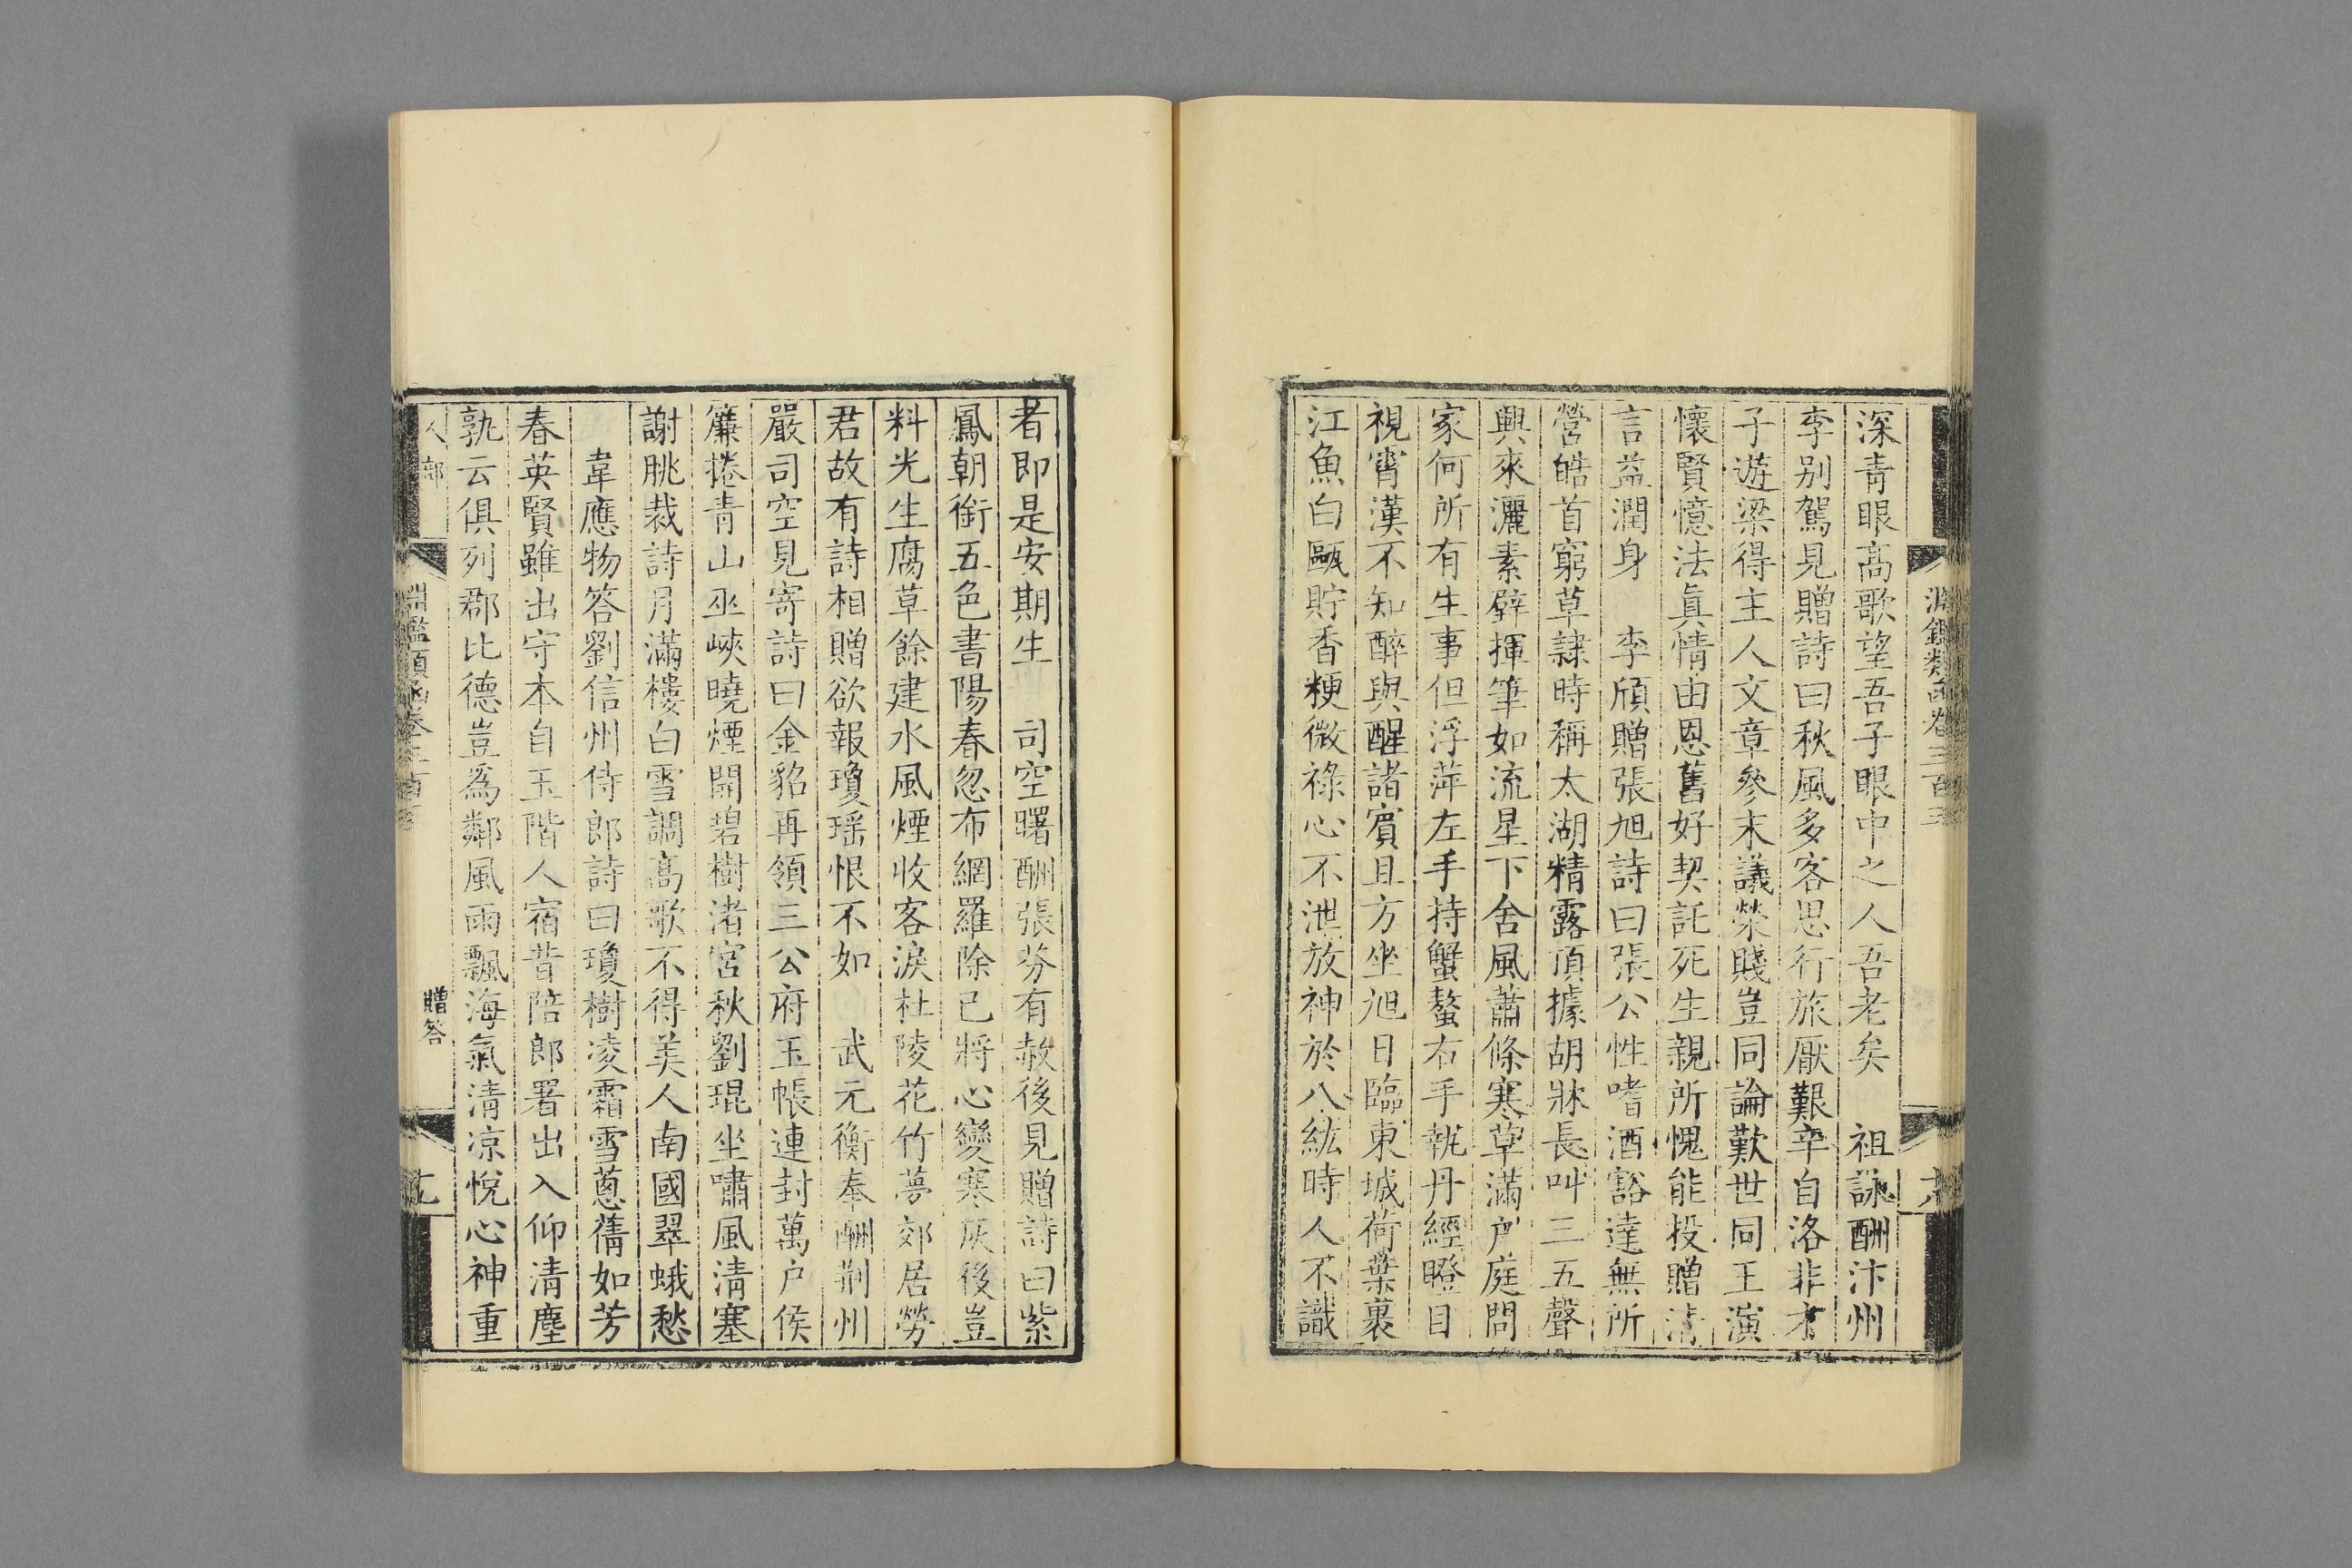 淵鑑類函卷三百三
深青眼高歌望吾子眼中之人吾老矣　祖詠酬汴州
李别駕見贈詩曰秋風多客思行旅厭艱辛自洛非才
子遊梁得主人文章參末議榮賤豈同論歎世同王演
懷賢憶法眞情由恩舊好契託死生親所愧能投贈清
言益潤身　李頎贈張旭詩曰張公性嗜酒豁達無所
營皓首窮草隷時稱太湖精露頂據胡牀長叫三五聲
興來灑素壁揮筆如流星下舍風蕭條寒草滿户庭問
家何所有生事但浮萍左手持蟹螯右手執丹經瞪目
視霄漢不知醉與醒諸賓且方坐旭日臨東城荷葉裹
江魚白甌貯香粳微祿心不泄放神於八紘時人不識
者即是安期生　司空曙酬張芬有赦後見贈詩曰紫
鳳朝銜五色書陽春忽布網羅除已將心變寒灰後豈
料光生腐草餘建水風煙收客淚杜陵花竹夢郊居勞
君故有詩相贈欲報瓊瑶恨不如　武元衡奉酬荆州
嚴司空見寄詩曰金貂再領三公府玉帳連封萬户侯
簾捲青山巫峽曉煙開碧樹渚宮秋劉琨坐嘯風清塞
謝朓裁詩月滿樓白雪調高歌不得美人南國翠蛾愁
韋應物答劉信州侍郎詩曰瓊樹凌霜雪蔥蒨如芳
春英賢雖出守本自玉階人宿昔陪郎署出入仰清塵
孰云俱列郡比德豈爲鄰風雨飄海氣清凉悅心神重
人部
淵鑑類函卷三百三
贈答